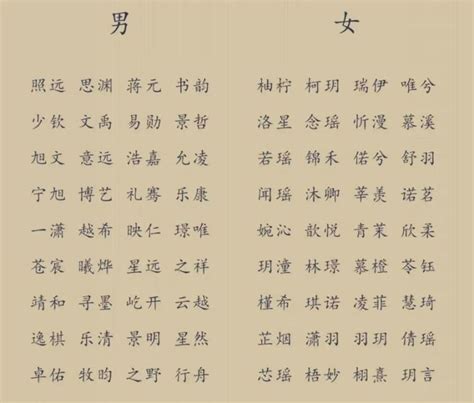 男 女
照远 思渊 蒋元 书韵 柚柠 柯玥 瑞伊 唯兮
少钦 文禹 易勋 景哲 洛星 念瑶 忻漫 慕溪
旭文 意远 浩嘉 允凌 若瑶 锦禾 偌兮 舒羽
宁旭 博艺 礼骞 乐康 闻瑶 沐卿 莘羡 诺茗
一潇 越希 映仁 璟唯 婉沁 歆悦 青茉 欣柔
苍宸 曦烨 星远 之祥 玥潼 林璟 慕橙 苓钰
靖和 寻墨 屹开 云越 槿希 琪诺 凌菲 慧琦
逸棋 乐清 景明 星然 芷烟 潇羽 羽玥 倩瑶
卓佑 牧昀 之野 行舟 芯瑶 梧妙 栩熹 玥言